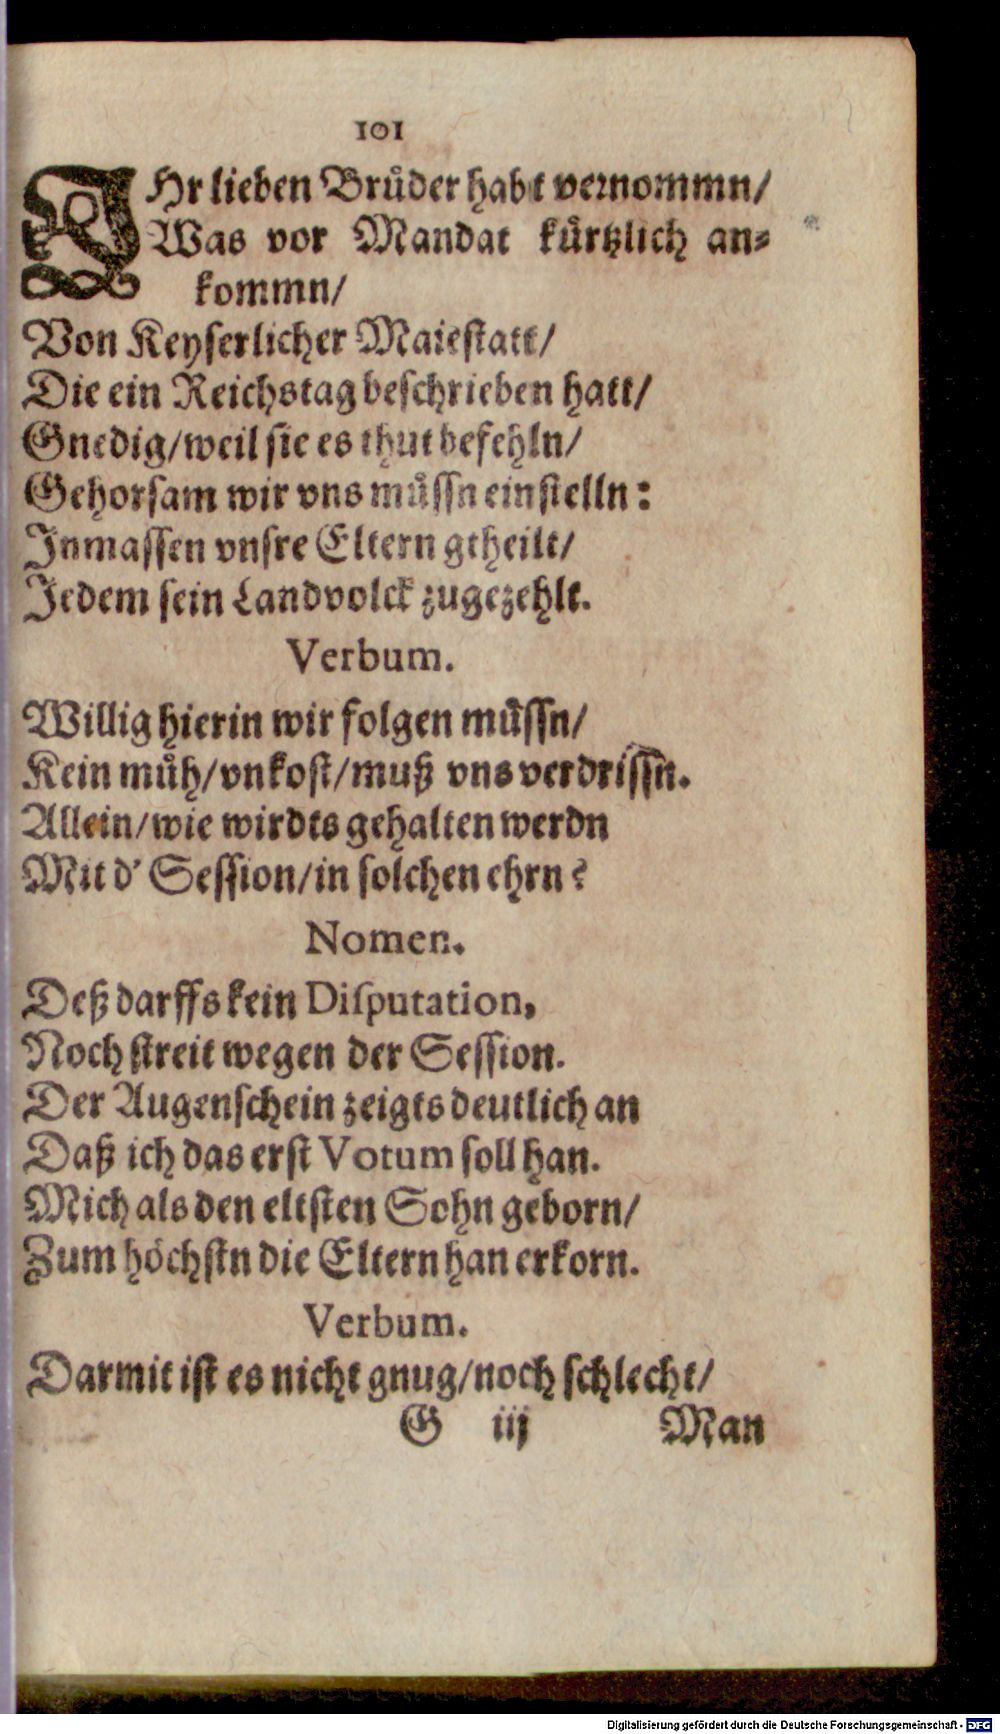 101
IHr lieben Bruͤder habt vernommn/
Was vor Mandat kuͤrtzlich an⸗
kommn/
Von Keyserlicher Maiestatt/
Die ein Reichstag beschrieben hatt/
Gnedig/weil sie es thut befehln/
Gehorsam wir vns muͤssn einstelln:
Inmassen vnsre Eltern gtheilt/
Jedem sein Landvolck zugezehlt.
Verbum.
Willig hierin wir folgen muͤssn/
Kein muͤh/vnkost/muß vns verdrissn.
Allein/wie wirdts gehalten werdn
Mit d' Session/in solchen ehrn?
Nomen.
Deß darffs kein Disputation,
Noch streit wegen der Session.
Der Augenschein zeigts deutlich an
Daß ich das erst Votum soll han.
Mich als den eltsten Sohn geborn/
Zum hoͤchstn die Eltern han erkorn.
Verbum.
Darmit ist es nicht gnug/noch schlecht/
G iij Man
Digitalisierung gefördert durch die Deutsche Forschungsgemeinschaft - DFG